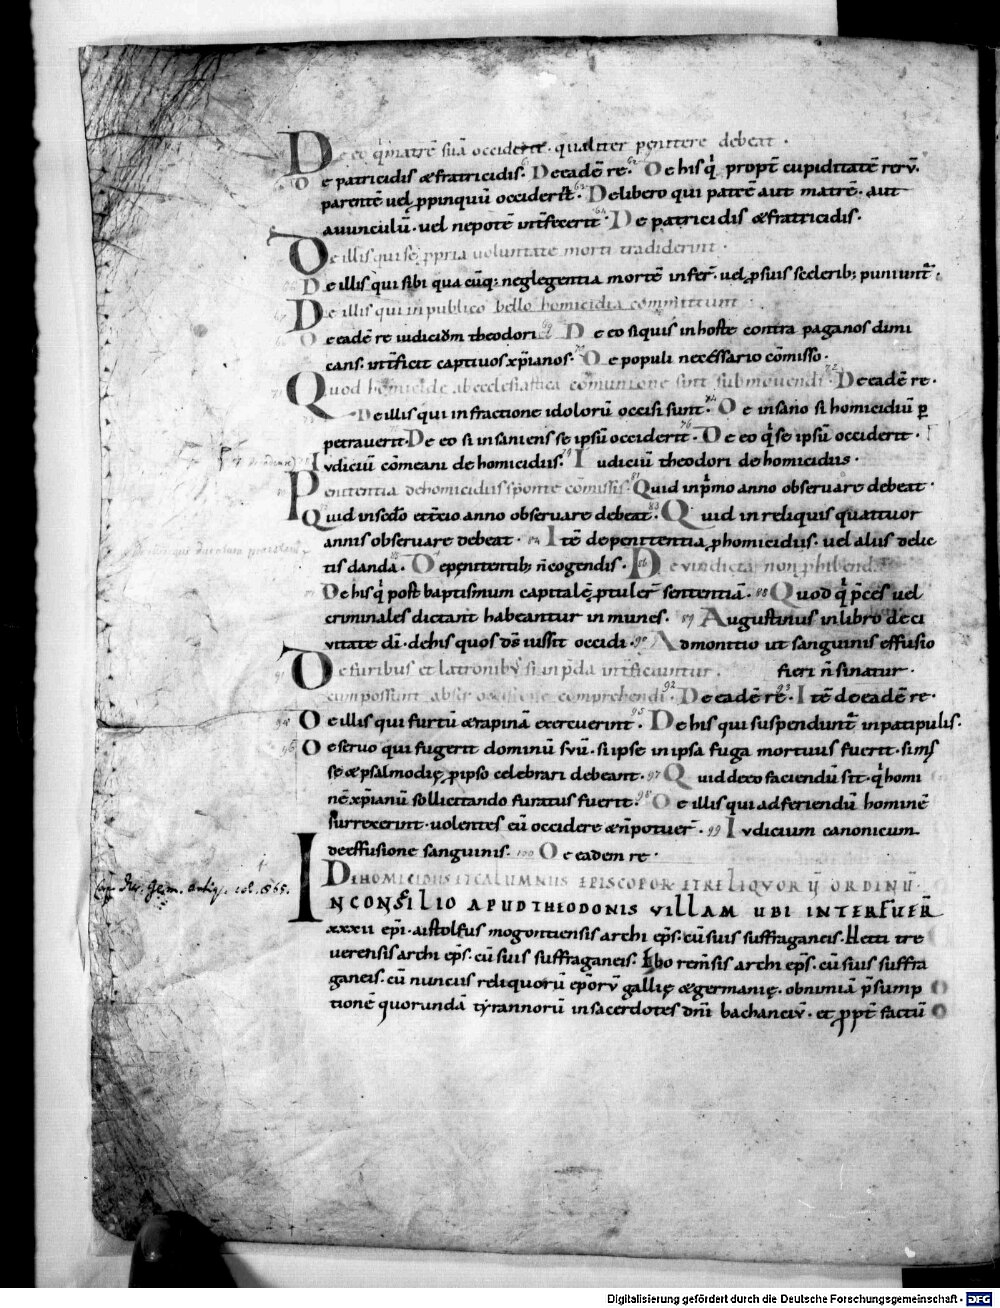 De eo q̇ matrē suā occiderit · qualiter penitere debeat ·
De patricidis & fratricidis · 61 De eadē re · 62 De his q̇ propt̄ cupiditatē rerū ·
parentē uel ꝓpinquū occideriꞇ̄ · 63 De libero qui patrē aut matrē · aut
auunculū · uel nepotē int̄fecerit · 64 De patricidis & fratricidis ·
De illis qui se ꝓpria uoluntate morti tradiderint ·
66 De illis qui sibi qua cūq; neglegentia mortē infer̄ · uel ꝓ suis scelerib; puniunt̄ ·
De illis qui in publico bello homicidia committunt
De eadē re iudiciōm theodori · 69 De eo siquis in hoste contra paganos dimi
cans · int̄ficit captiuos xp̄ianos · De populi necessario cōmisso ·
Quod homicide ab ecclesiastica cōmunione sint submouendi · 72 De eadē re ·
De illis qui in fractione idolorū occisi sunt · 74 De insano si homicidiū ꝑ
petrauerit · De eo si insaniens se ipsū occiderit · 76 De eo q̇ se ipsū occiderit ·
Iudiciū cōmeani de homicidiis · 79 Iudiciū theodori de homicidiis ·
Penitentia de homicidiis sponte cōmissis · 81 Quid in pͥmo anno obseruare debeat ·
Quid in scd̄o et tc̄io anno obseruare debeat · 83 Quid in reliquis quattuor
annis obseruare debeat · 84 Itē de penitentia ꝓ homicidiis · uel aliis delic
tis danda · 85 De penitentib; n̄ cogendis · 86 De uindicta non ꝓhibend
De his q̇ post baptismum capitalē ꝓtuler̄ sententiā · 88 Quod q̇ p̄ces uel
criminales dictant habeantur inmunes · 89 Augustinus in libro de ci
uitate dī · de his quos d̄s iussit occidi · 90 Admonitio ut sanguinis effusio
De furibus et latronib; si in p̄da int̄ficiuntur · fieri n̄ sinatur ·
cum possint absq; occisione comprehendi · 92 De eadē rē · 93 Itē de eadē re ·
94 De illis qui furtū & rapinā exercuerint · 95 De his qui suspendunt̄ in patipulis ·
96 De seruo qui fugerit dominū suū · si ipse in ipsa fuga mortuus fuerit · si mis
se & psalmodię ꝓ ipso celebrari debeant · 97 Quid de eo faciendū sit · q̇ homi
nē xp̄ianū sollicitando furatus fuerit · 98 De illis qui ad feriendū hominē
surrexerint · uolentes eū occidere & n̄ potuer̄ · 99 Iudicium canonicum
de effusione sanguinis · 100 De eadem re ·
DE HOMICIDIIS ET CALUMNIIS EPISCOPOR ET RELIQUORŪ ORDINŪ ·
IN CONSILIO APUD THEODONIS VILLAM UBI INTERFUER̄
xxxii ep̄i · aistolfus mogontiensis archi ep̄s · cū suis suffraganeis · Hetti tre
uerensis archi ep̄s · cū suis suffraganeis · Ebo remēsis archi ep̄s · cū suis suffra
ganeis · cū nunciis reliquorū ep̄orū gallię & germanię · ob nimiā p̄sump
tionē quorundā tyrannorū in sacerdotes dn̄i bachanciū · et ꝓpt̄ factū
Corp. Jur. Germ. Antiq. col. 865.
Digitalisierung gefördert durch die Deutsche Forschungsgemeinschaft - DFG